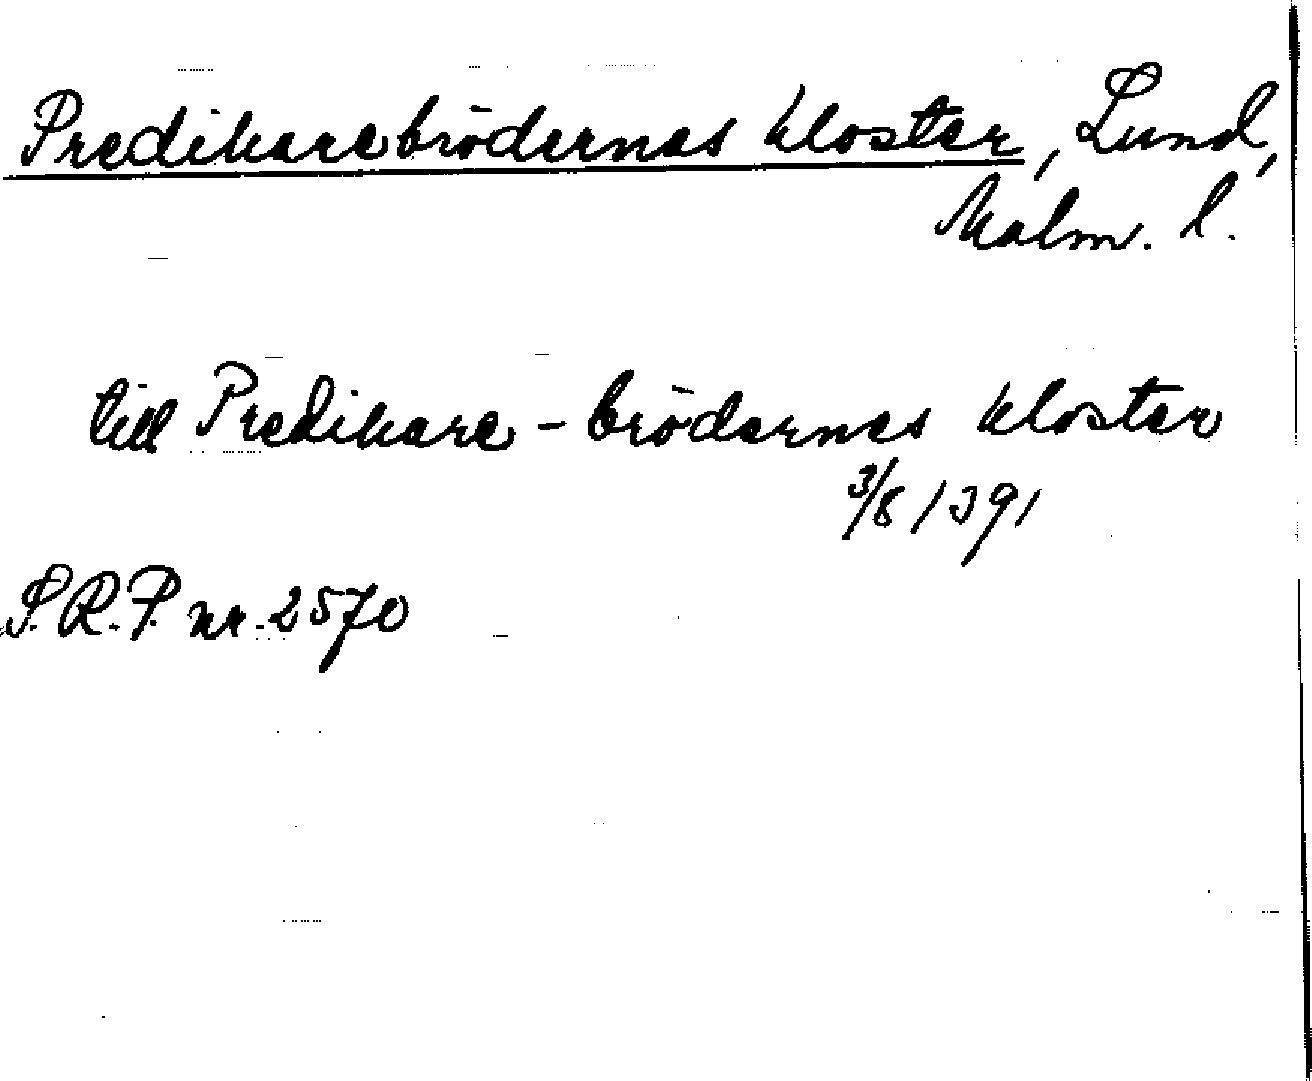 Predikarebrödernas kloster, Lund,
Malm. l.
till Predikare-brödernas kloster
3/8 1391
S.R.P. nr. 2570